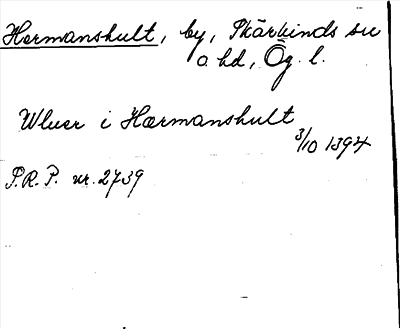 Hermanshult, by, Skärkinds sn
o hd, Ög. l.
Wluer i Hærmanshult
3/10 1394
P.R.P. nr. 2739